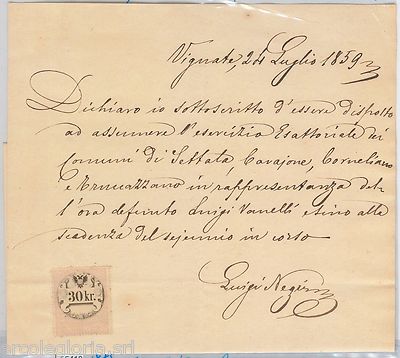 Vignate, 24 Luglio 1859
Dichiaro io sottoscritto d'essere disposto
ad assumere l'esercizio Esattoriale dei
Comuni di Settala, Cavajone, Corneliano
e Trucazzano in rappresentanza del-
l'ora defunto Luigi Vanelli e sino alla
scadenza del sejennio in corso
Luigi Negri
30 kr.
arcolegloria.srl